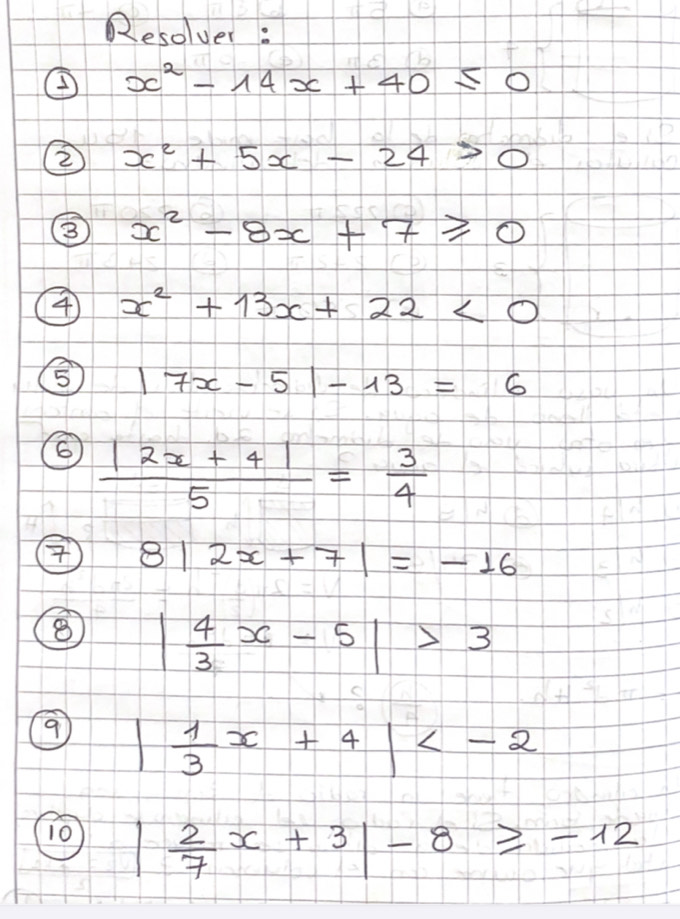 Resolver :
① x² - 14x + 40 ≤ 0
② x² + 5x - 24 > 0
③ x² - 8x + 7 ≥ 0
④ x² + 13x + 22 < 0
⑤ |7x - 5| - 13 = 6
⑥ |2x + 4|/5 = 3/4
⑦ 8|2x + 7| = -16
⑧ |4/3 x - 5| > 3
⑨ |1/3 x + 4| < -2
⑩ |2/7 x + 3| - 8 ≥ -12